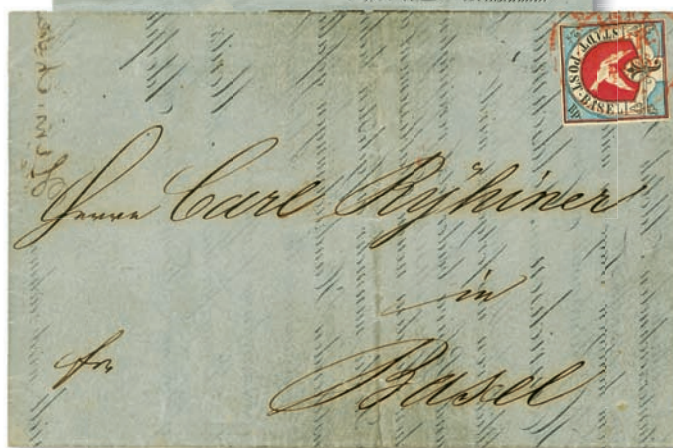 STADT-POST-BASEL
Herrn Carl Ryhiner
in
fco Basel